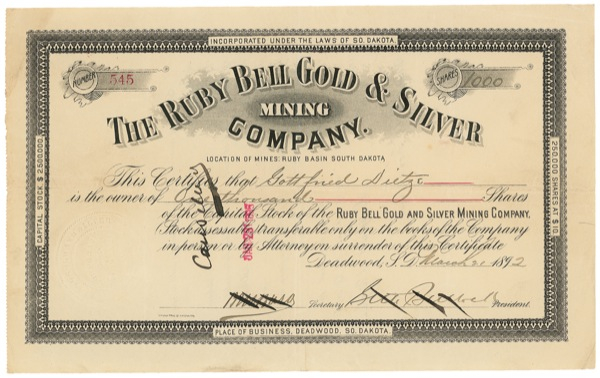 INCORPORATED UNDER THE LAWS OF SO. DAKOTA.
NUMBER 545
SHARES 1000
THE RUBY BELL GOLD & SILVER
MINING
COMPANY.
LOCATION OF MINES: RUBY BASIN SOUTH DAKOTA
CAPITAL STOCK $2,500,000.
250,000 SHARES AT $10.
This Certifies that Gottfried Dietz
is the owner of One thousand Shares
of the Capital Stock of the RUBY BELL GOLD AND SILVER MINING COMPANY,
Stock assessable transferable only on the books of the Company
in person or by Attorney on surrender of this Certificate
Deadwood, S.D. March 1892
Cancelled
Secretary
President
PLACE OF BUSINESS, DEADWOOD, SO. DAKOTA.